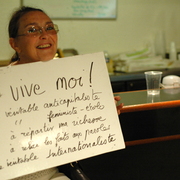 VIVE MOI!
véritable anticapitaliste
" féministe - écolo
à répartir mes richesse
à relier les faits aux paroles
véritable Internationaliste